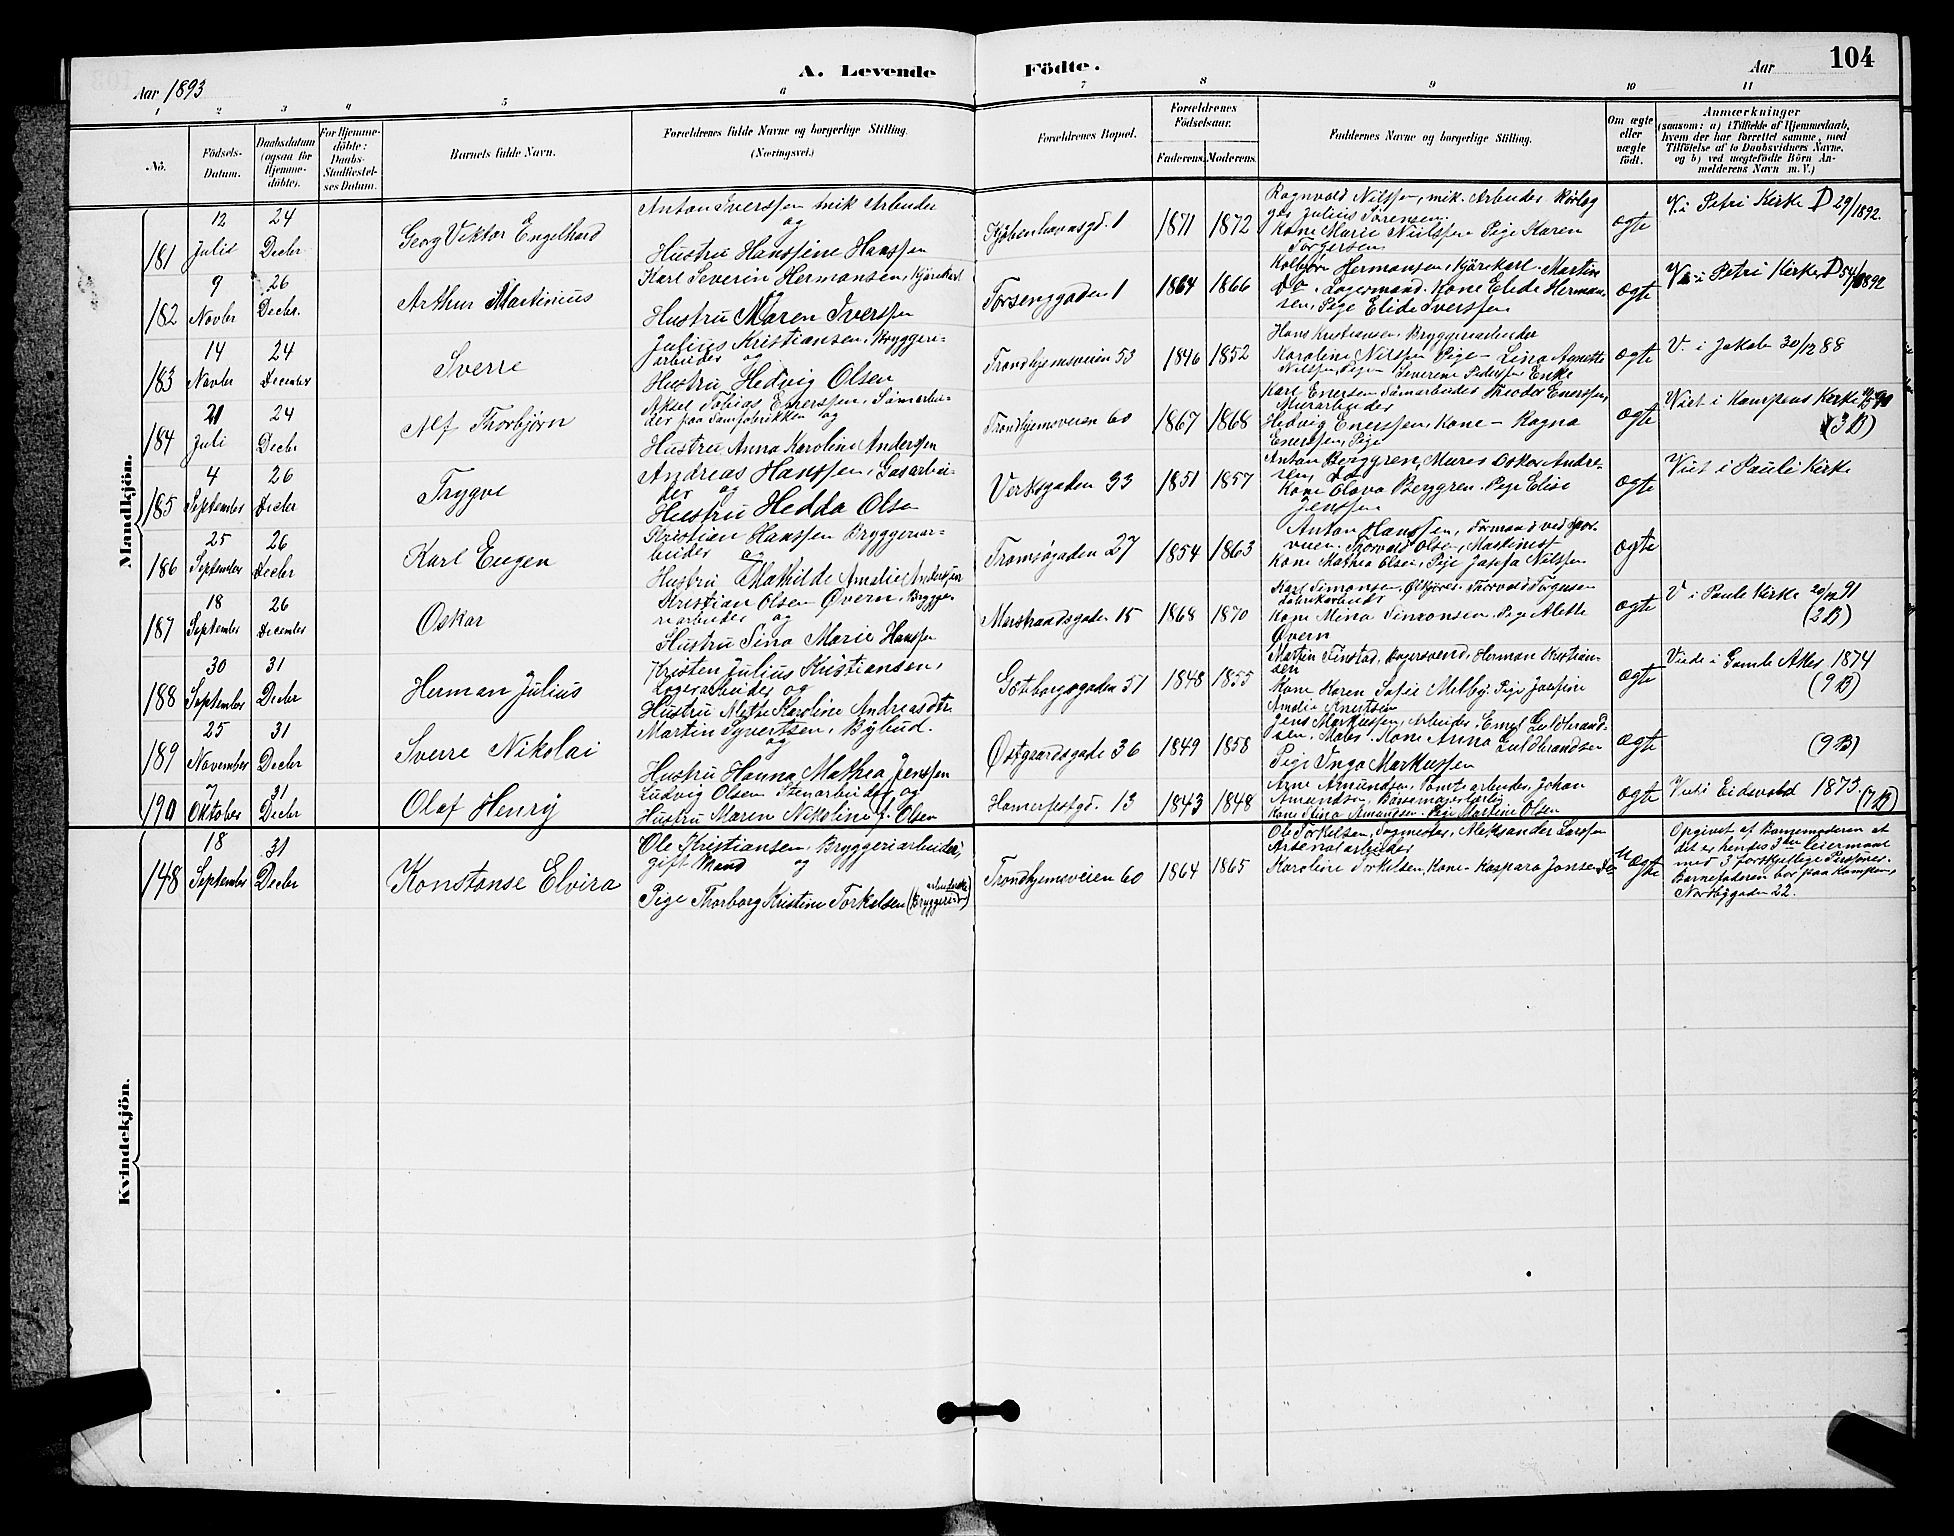 104
A. Levende Födte.
Aar 1893
Aar
1 2 3 4 5 6 7 8 9 10 11
No.
Födsels-Datum.
Daabsdatum (ogsaa for Hjemme-döbte).
For Hjemme-döbte: Daabs-Stadfæstel-ses Datum.
Barnets fulde Navn.
Forældrenes fulde Navne og borgerlige Stilling.
(Næringsvei.)
Forældrenes Bopæl.
Forældrenes Födselsaar.
Faderens. Moderens.
Faddernes Navne og borgerlige Stilling.
Om ægte eller uægte födt.
Anmærkninger
(saasom: a) i Tilfælde af Hjemmedaab, hvem der har forrettet samme, med Tilföielse af to Daabsvidners Navne, og b) ved uægtefödte Börn Anmelderens Navn m. V.)
Mandkjön.
181
12 Juli
24 Decbr
Georg Viktor Engelhard
Anton Iverssen mek Arbeider
og
Hustru Hanssine Hanssen
Kjøbenhavnsgd. 1
1871 1872
Ragnvald Nilssen, mek. Arbeider Rørlæg
ger Julius Sørensen
Kone Marie Nilssen Pige Karen
Torgersen
ægte
V. i Petri Kirke D 29/1892.
182
9 Novbr
26 Decbr.
Arthur Martinius
Karl Severin Hermansen, Kjørekarl
og
Hustru Maren Iverssen
Torsenggaden 1
1864 1866
Kolbjørn Hermansen, Kjørekarl. Martin
Do. Lagermand. Kone Elide Herman-
sen, Pige Elide Iverssen
ægte
V. i Petri Kirke, D 54/1892
183
14 Novbr
24 December
Sverre
Julius Kristiansen, Bryggeri-
arbeider og
Hustru Hedvig Olsen
Trondhjemsveien 53
1846 1852
Hans Kristiansen Bryggeriarbeider
Karoline Nilssen Pige - Lina Annette
Nilssen Pige Severine Pederssen Enke
ægte
V. i Jakob 30/12 88
184
21 Juli
24 Decbr
Alf Thorbjørn
Aksel Tobias Enerssen, Sømarbei-
der paa Sømfabrikken og
Hustru Anna Karoline Anderssen
Trondhjemsveien 60
1867 1868
Karl Enersen Sømarbeider Theodor Enerssen,
Murarbeider
Hedvig Enerssen, Kone - Ragna
Enerssen, Pige
ægte
Viet i Kampens Kirke
(3 B)
185
4 September
26 Decbr
Trygve
Andreas Hanssen, Gasarbei-
der og
Hustru Hedda Olsen
Verksgaden 33
1851 1857
Anton Berggren, Murer Oskar Andre-
sen, Do
Kone Olava Berggren. Pige Elise
Jenssen
ægte
Viet i Pauli Kirke
186
25 September
26 Decbr
Karl Eugen
Kristian Hanssen Bryggeriar-
beider og
Hustru Mathilde Amalie Anderssen
Tromsøgaden 27
1854 1863
Anton Hanssen, Formand ved Spor-
veien. Thorvald Olsen, Maskinist
Kone Mathea Olsen, Pige Josefa Nilssen
ægte
187
18 September
26 December
Oskar
Kristian Olsen Øvern, Brygge-
riarbeider og
Hustru Sina Marie Hanssen
Marstrandsgaden 15
1868 1870
Karl Simonsen, Ølkjører. Thorvald Torgersen
Fabrikarbeider
Kone Mina Simonsen. Pige Alette
Øvern
ægte
V i Pauli Kirke 20/12 91
(2 B)
188
30 September
31 Decbr
Herman Julius
Kristen Julius Kristiansen,
Lagerarbeider og
Hustru Mette Karoline Andreasdtr.
Gøteborggaden 51
1848 1855
Martin Finstad, Bagersvend, Herman Kristian-
sen
Kone Karen Sofie Melby. Pige Josefine
Amalie Knertsen
ægte
Viede i Gamle Aker 1874
(9 B)
189
25 November
31 Decbr
Sverre Nikolai
Martin Syvertsen, Bybud.
og
Hustru Hanna Mathea Jenssen
Østgaardsgade 36
1849 1858
Jens Markussen, Arbeider. Engel Guldbrand-
sen, Maler. Kone Anna Guldbrandsen
Pige Inga Markussen
ægte
(9 B)
190
7 Oktober
31 Decbr
Olaf Henry
Ludvig Olsen Stenarbeider og
Hustru Maren Nikoline f. Olsen
Hamerfestgd. 13
1843 1848
Arne Amundsen, Tomtearbeider, Johan
Amundsen,
Kone Stina Amundsen. Pige Martine Olsen
ægte
Viet i Eidsvold 1873. (7 B)
Kvindekjön.
148
18 September
31 Decbr
Konstanse Elvira
Ole Kristiansen, Bryggeriarbeider,
gift Mand og
Pige Thorborg Kristine Torkelsen (Bryggeri-arbeiderske)
Trondhjemsveien 60
1864 1865
Ole Torkelsen, Sagmester, Aleksander Larssen
Arsenalarbeider
Karoline Torkelsen, Kone. Kaspara Jonsen Do
uægte
Opgivet af Barnemoderen at
det er hendes 3die Leiermaal
med 3 forskjellige Personer.
Barnefaderen bor paa Kampen,
Nordbygaden 22.